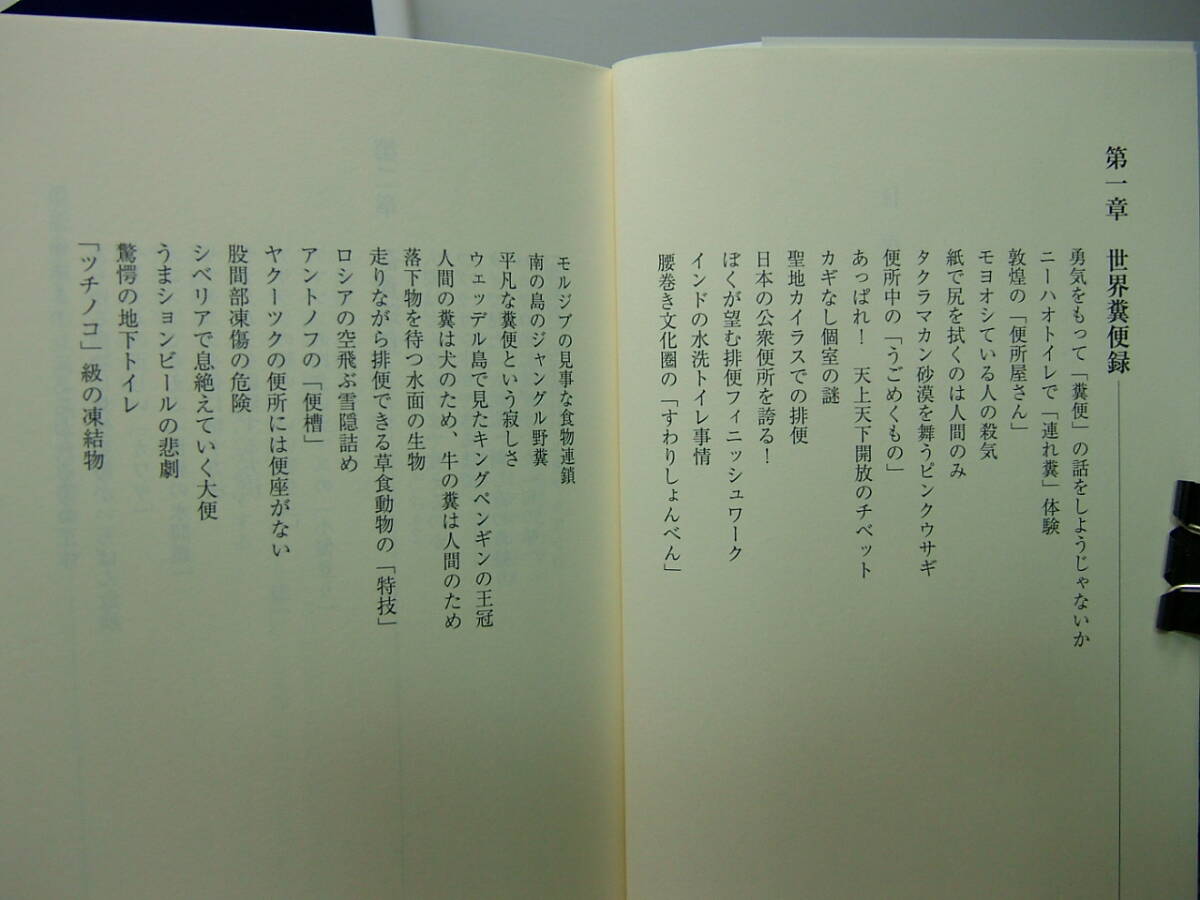 第一章　世界糞便録
勇気をもって「糞便」の話をしようじゃないか
ニーハオトイレで「連れ糞」体験
敦煌の「便所屋さん」
モヨオシている人の殺気
紙で尻を拭くのは人間のみ
タクラマカン砂漠を舞うピンクウサギ
便所中の「うごめくもの」
あっぱれ！　天上天下開放のチベット
カギなし個室の謎
聖地カイラスでの排便
日本の公衆便所を誇る！
ぼくが望む排便フィニッシュワーク
インドの水洗トイレ事情
腰巻き文化圏の「すわりしょんべん」
モルジブの見事な食物連鎖
南の島のジャングル野糞
平凡な糞便という寂しさ
ウェッデル島で見たキングペンギンの王冠
人間の糞は犬のため、牛の糞は人間のため
落下物を待つ水面の生物
走りながら排便できる草食動物の「特技」
ロシアの空飛ぶ雪隠詰め
アントノフの「便槽」
ヤクーツクの便所には便座がない
股間部凍傷の危険
シベリアで息絶えていく大便
うまションビールの悲劇
驚愕の地下トイレ
「ツチノコ」級の凍結物